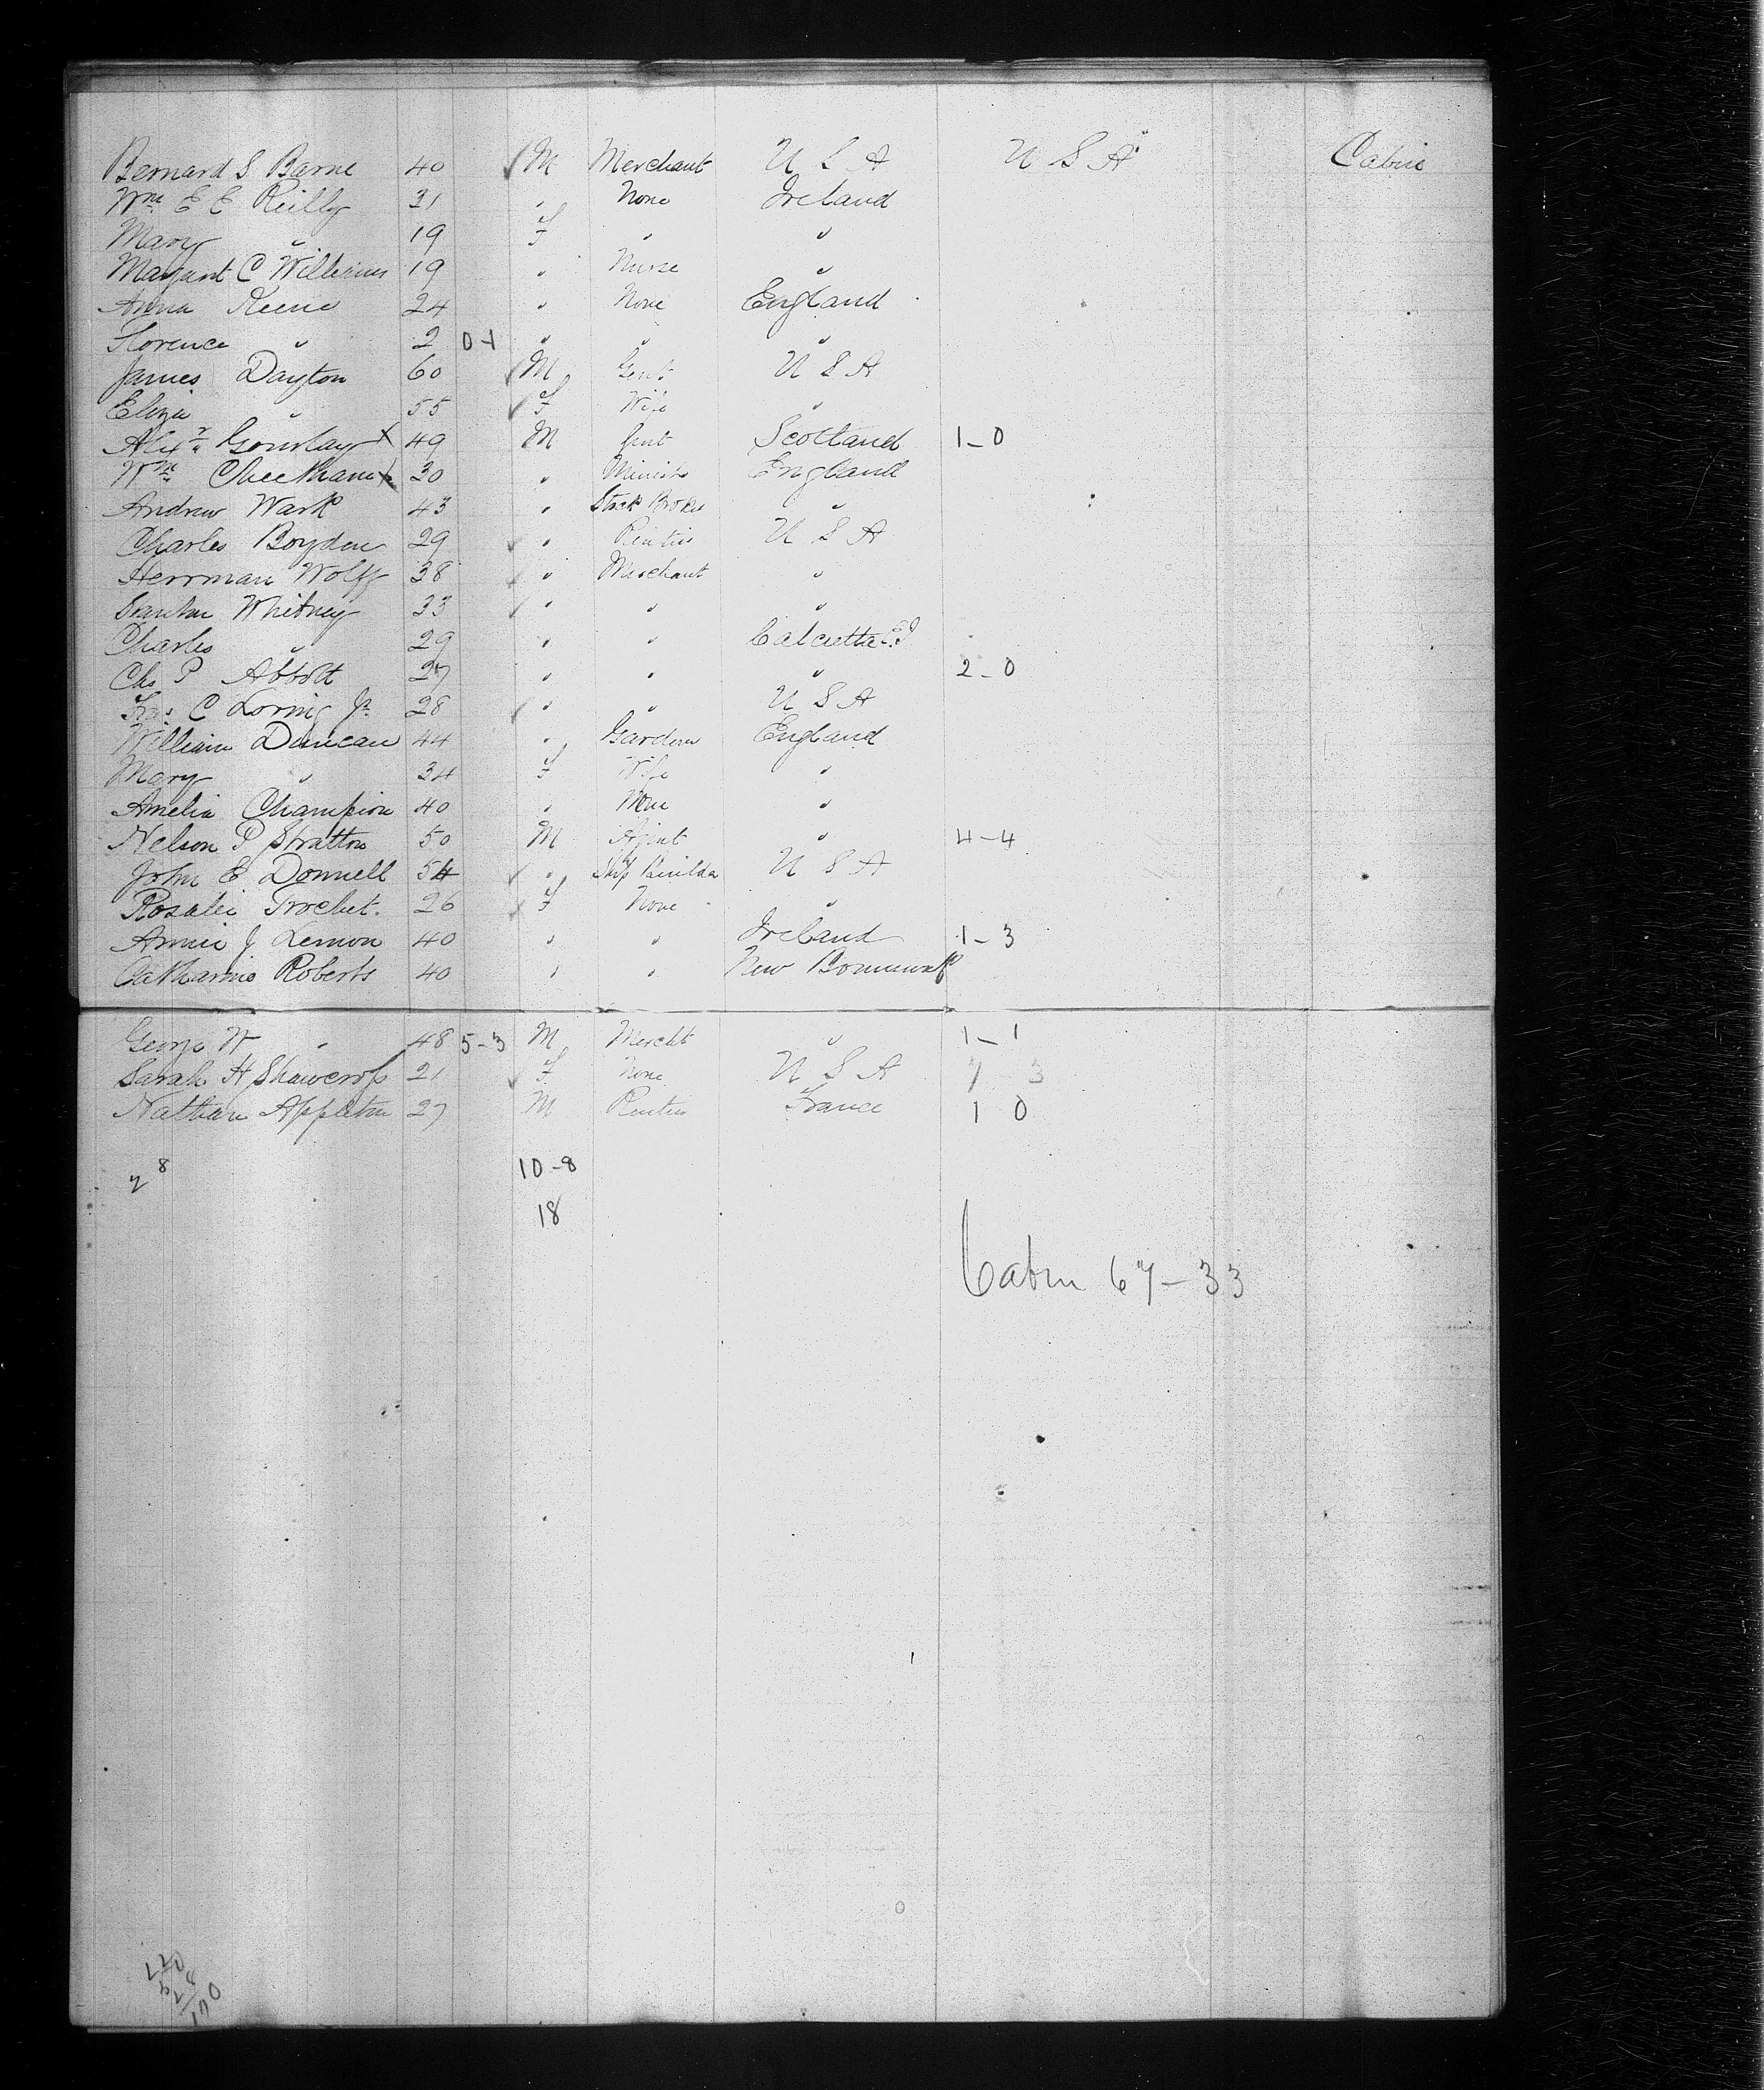 Bernard S Barne 40 M Merchant U S A U S A Cabin
Wm E E Reilly 31 " None Ireland
Mary " 19 F " "
Margaret C Williams 19 " Nurse "
Anna Keene 24 " None England
Florence " 2 0-1 " " "
James Dayton 60 M Gent U S A
Eliza " 55 F Wife "
Alexr Gourlay X 49 M Gent Scotland 1-0
Wm Cheetham X 30 " Ministr England
Andrew Wark 43 " Stock Broker "
Charles Boyden 29 " Rentier U S A
Herrman Wolff 38 " Merchant "
Whitney 33 " " "
Charles " 29 " " Calcutta E.I
Chs P Abbott 27 " " " 2-0
C Loring Jr. 28 " " U S A
William Duncan 44 " Gardner England
Mary " 34 F Wife "
Amelia Champion 40 " None "
Nelson P Stratton 50 M Agent " 4-4
John E Donnell 54 " Ship Builder U S A
Rosalie Trochet. 26 F None "
Annie J Lemon 40 " " Ireland 1-3
Catharine Roberts 40 " " New Brunswk
George W " 48 5-3 M Mercht " 1-1
Sarah H Shawcross 21 F None U S A 7 3
Nathan Appleton 27 M Rentier France 1 0
28 10-8
18
Cabin 67-33